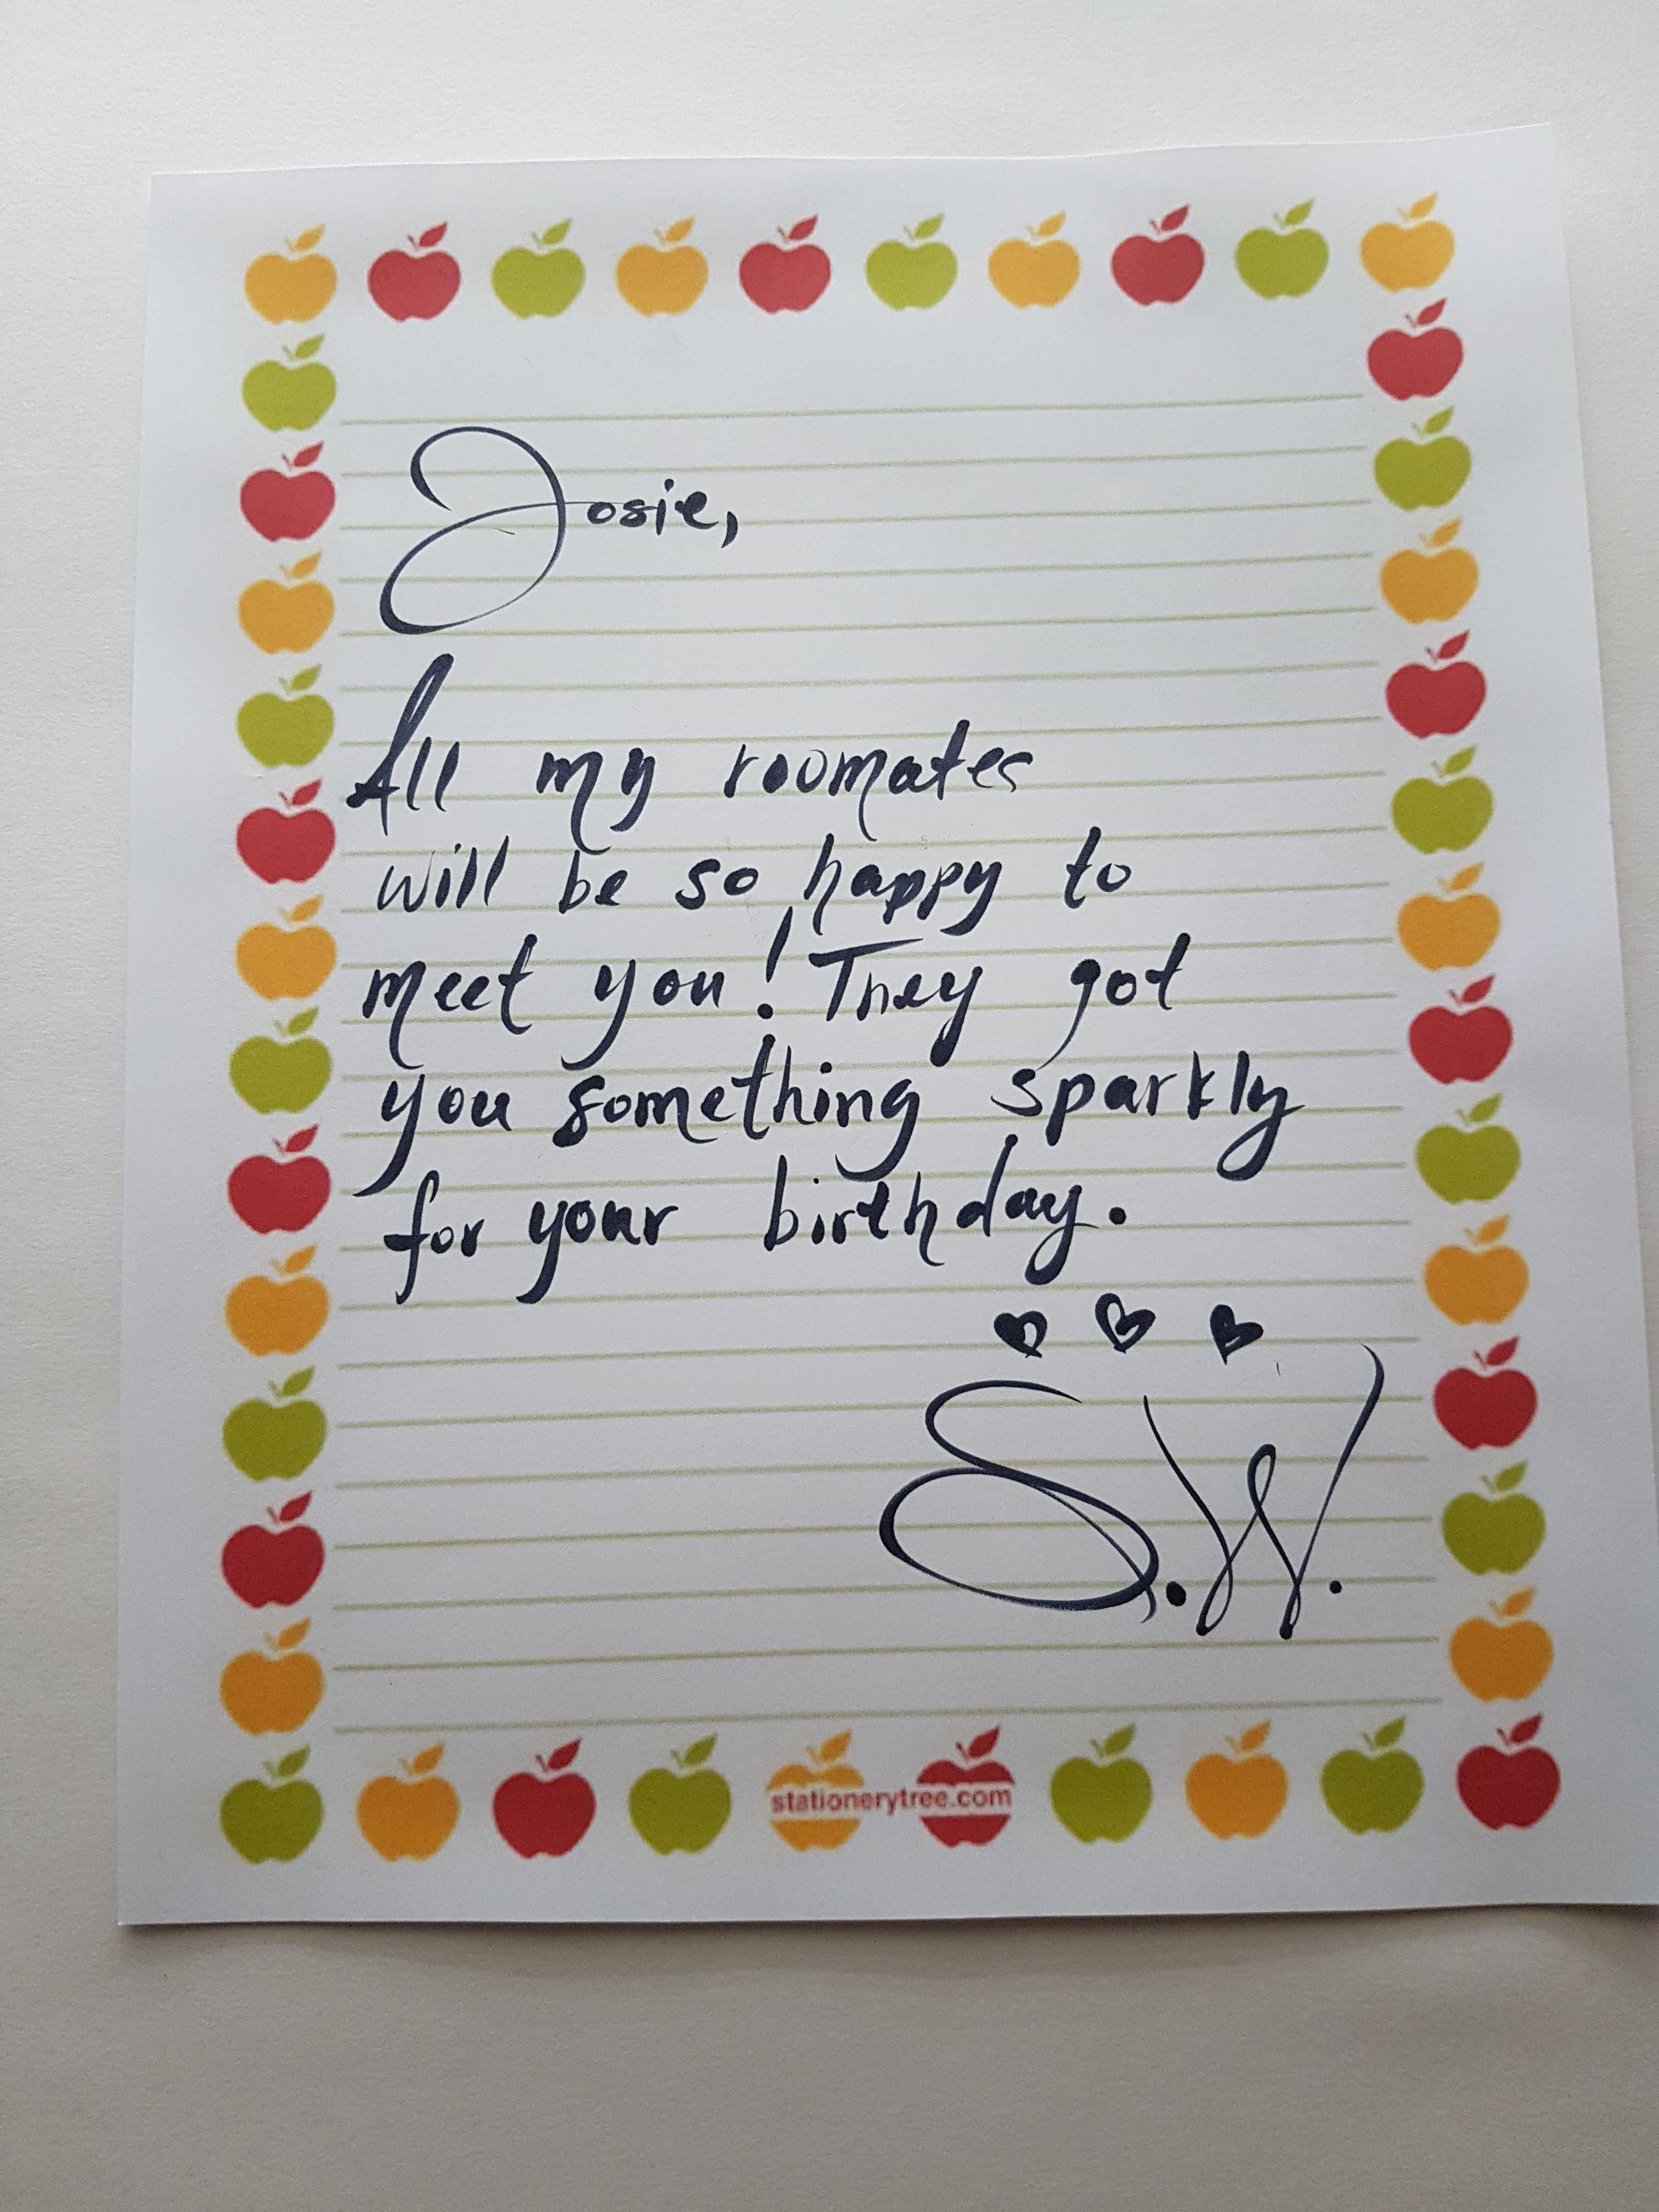 Josie,
All my roomates
will be so happy to
meet you! They got
you something sparkly
for your birthday.
S.W.
stationerytree.com